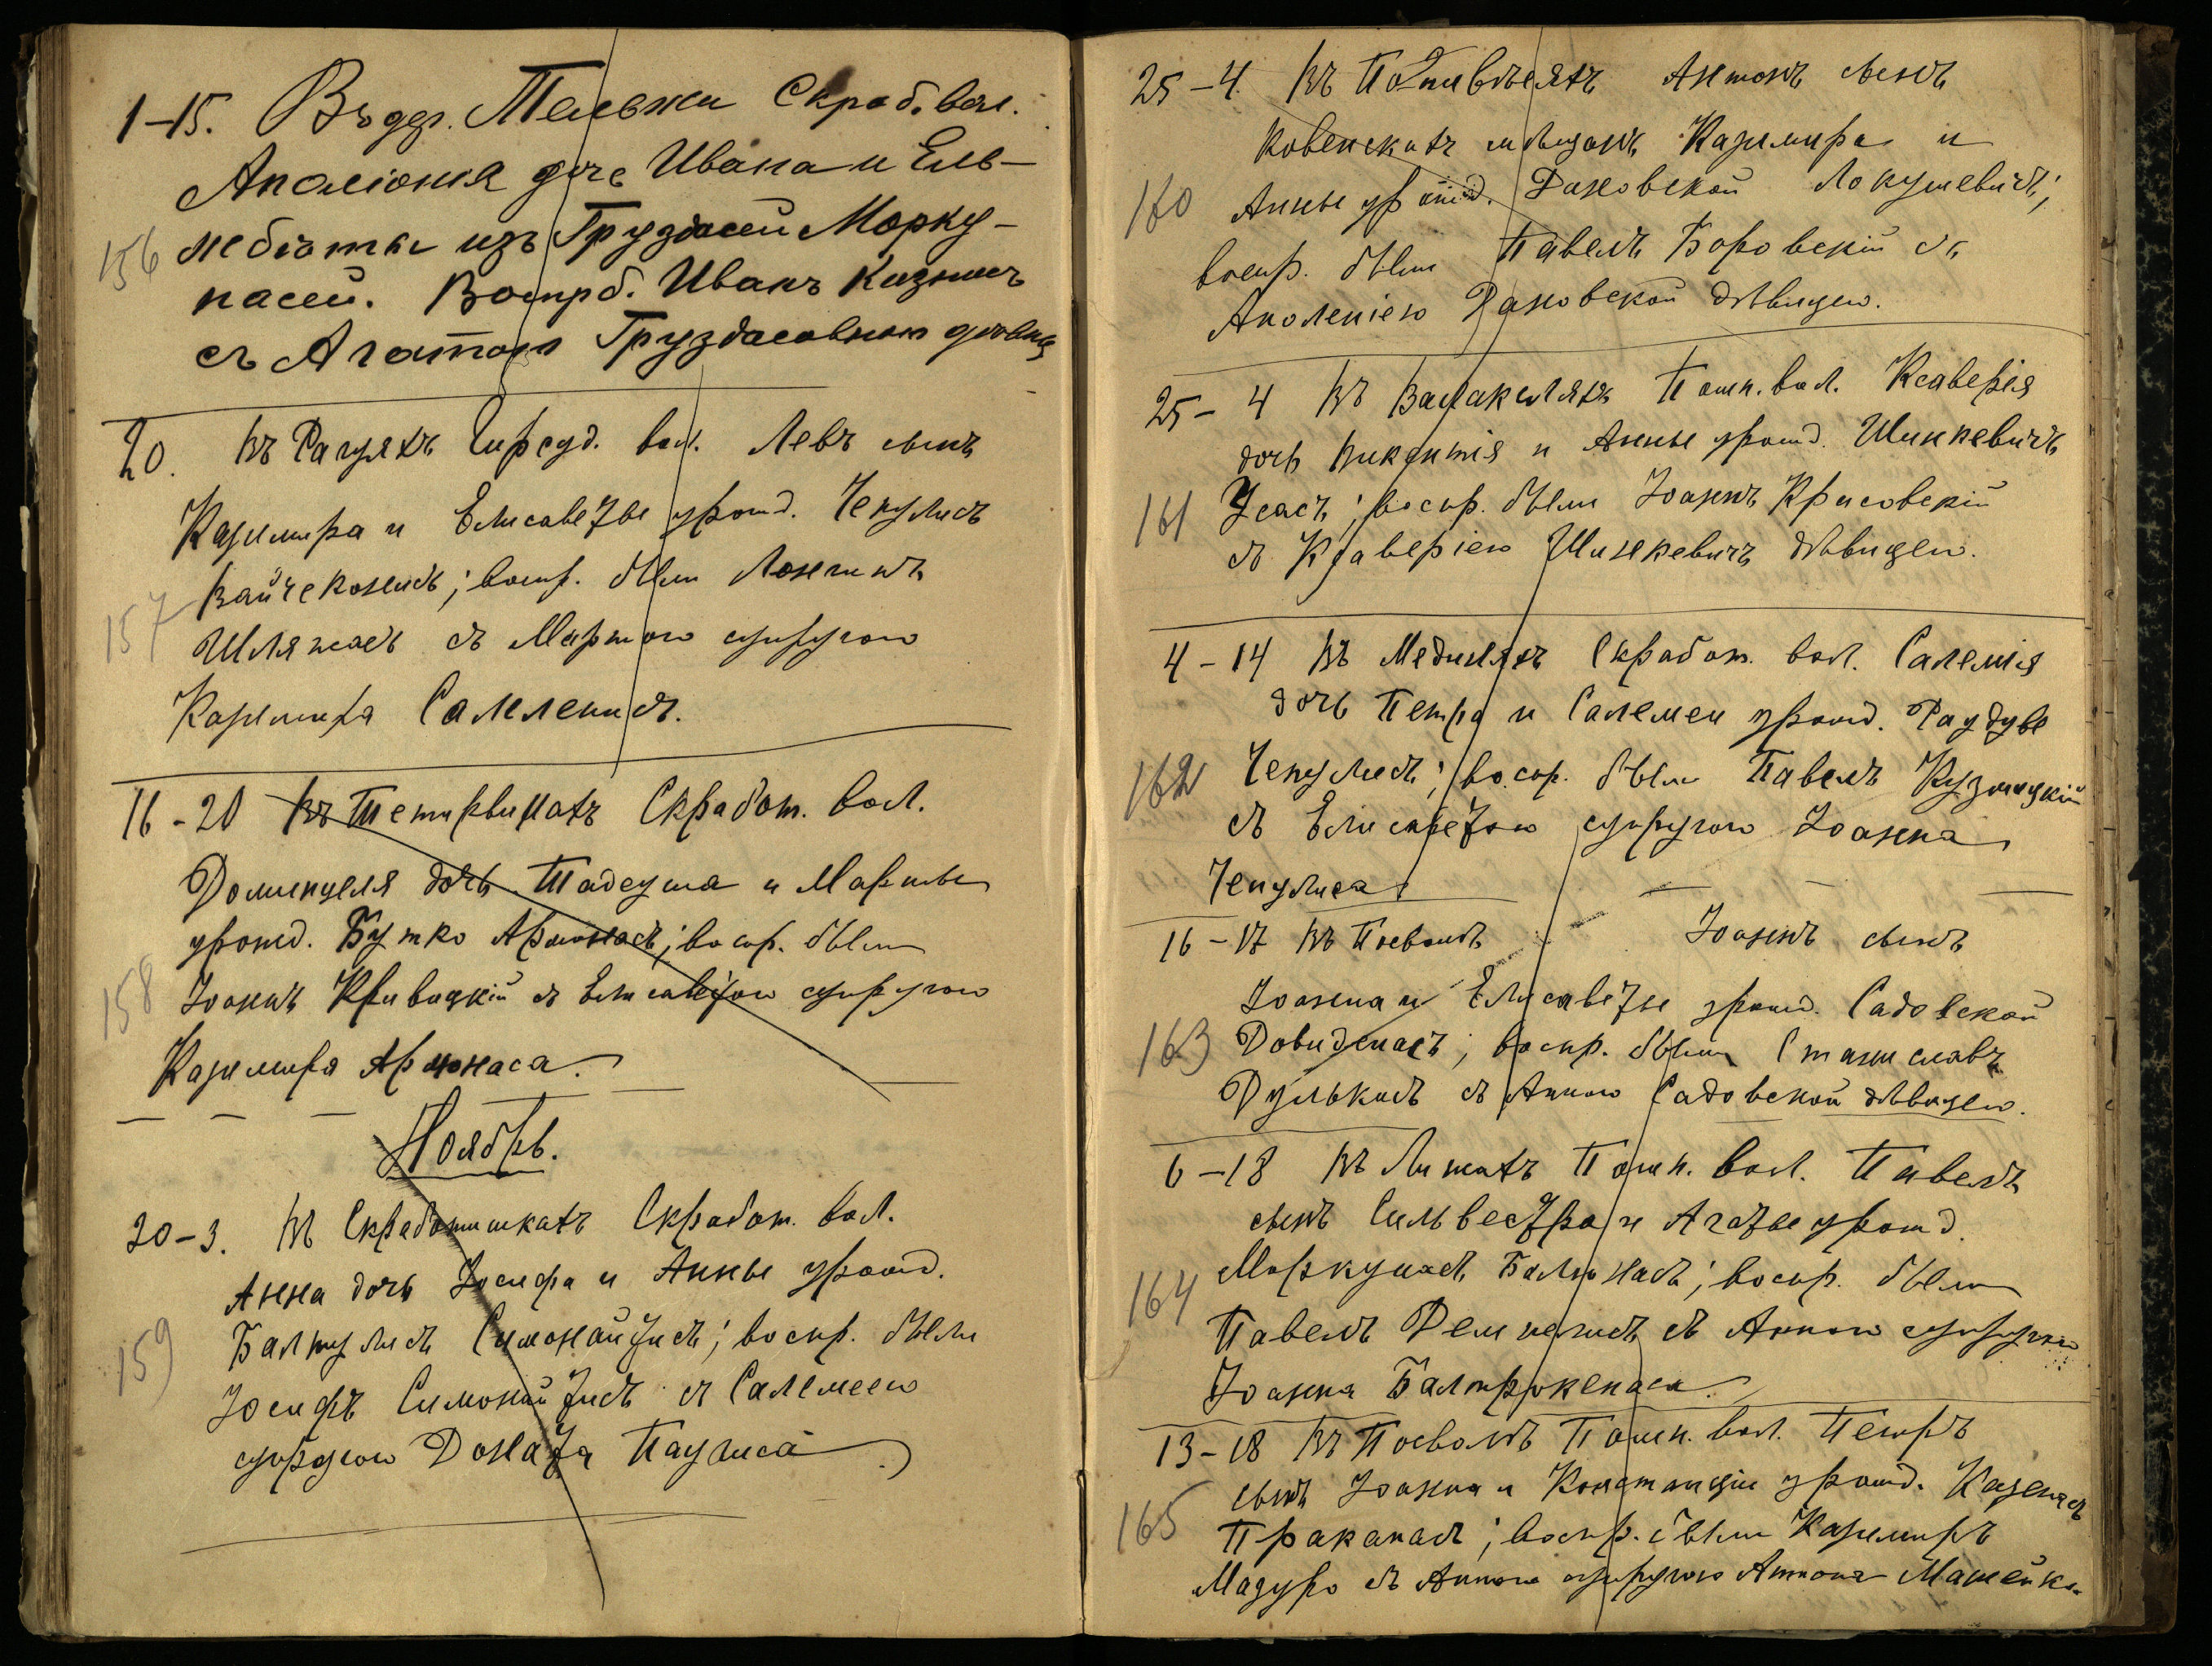 1–15. Въ дер. Тельжи Скроб. вол.
Аполіонія дочь Ивана и Ель–
156
жбіэты изъ Груздасей Морку–
насей. Воспр б. Иванъ Казюнъ
съ Агатою Груздасовною
20. въ Рагуляхъ вол. Левъ сынъ
Казимира и Елисаветы урожд. Чепулисъ
157
Вайчеконисъ; воспр. были Лонгинъ
Шляжасъ съ Мартою супругою
Казимира
16–20 въ Тетирвинахъ Скработ. вол.
Доминцеля дочь Тадеуша и Марты
урожд. Бутко Армонасъ; воспр. были
158
Іоаннъ Кривицкій съ Елисаветою супругою
Казимира Армонаса.
Ноябрь.
20–3. въ Скработишкахъ Скработ. вол.
Анна дочь Іосифа и Анны урожд.
159
Балтулисъ Симонайтисъ; воспр. были
Іосифъ Симонайтисъ съ Салемеею
супругою Доната Паулиса
25–4. въ Антонъ сынъ
Ковенскихъ мѣщанъ Казимира и
160
Анны урожд. Дановской Локушевичъ;
воспр. были Павелъ Боровскій съ
Аполеніею Дановской дѣвицею.
25–4 въ Валакеляхъ Пошп. вол. Ксаверія
дочь Викентія и Анны урожд. Шинкевичъ
161
Усасъ; воспр. были Іоаннъ Крисовскій
съ Ксаверіею Шинкевичъ дѣвицею.
4–14 въ Мединяхъ Скработ. вол. Салемія
дочь Петра и Салемеи урожд. Раудуве
162
Чепулисъ; воспр. были Павелъ Кузмицкій
съ Елисаветою супругою Іоанна
Чепулиса
16–17 въ Посволь Іоаннъ сынъ
Іоанна и Елисаветы урожд. Садовской
163
Довиденасъ; воспр. были Станиславъ
Дулькисъ съ Анною Садовской дѣвицею.
6–18 въ Пошп. вол. Павелъ
сынъ Сильвестра и Агаты урожд.
164
Моркунасъ Балюнасъ; воспр. были
Павелъ съ Анною супругою
Іоанна
13–18 въ Посволь Пошп. вол. Петръ
сынъ Іоанна и Констанціи урожд. Казенасъ
165
Праканасъ; воспр. были Казимиръ
Мадуро съ Анною супругою Антона Мацейко